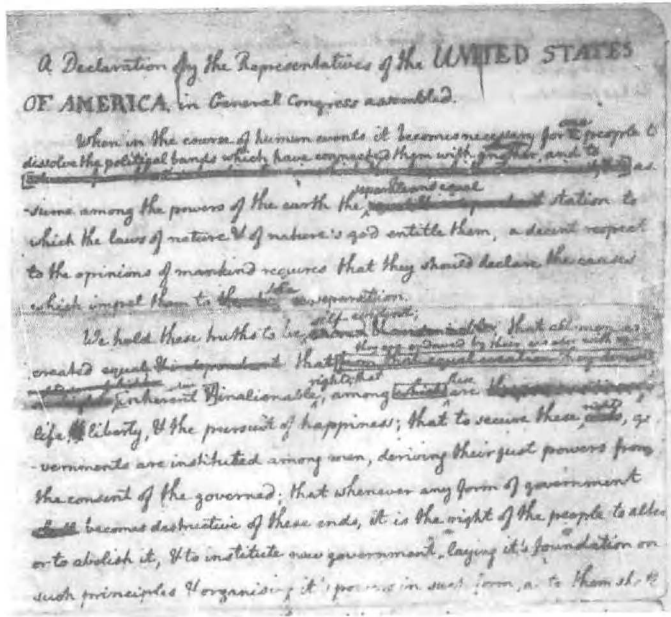 A Declaration by the Representatives of the UNITED STATES
OF AMERICA, in General Congress assembled.
When in the course of human events it becomes necessary for one people to
dissolve the political bands which have connected them with another, and to
as
separate and equal
-sume among the powers of the earth the station to
which the laws of nature & of nature's god entitle them, a decent respect
to the opinions of mankind requires that they should declare the causes
which impel them to the separation.
self-evident;
We hold these truths to be that all men are
they are endowed by their creator with
created equal & independent that from that equal creation they derive
rights; that these
inherent & inalienable among which are
rights
life, liberty, & the pursuit of happiness; that to secure these ends, go
vernments are instituted among men, deriving their just powers from
the consent of the governed; that whenever any form of government
shall becomes destructive of these ends, it is the right of the people to alter
or to abolish it, & to institute new government, laying it's foundation on
such principles & organising it's powers in such form, as to them